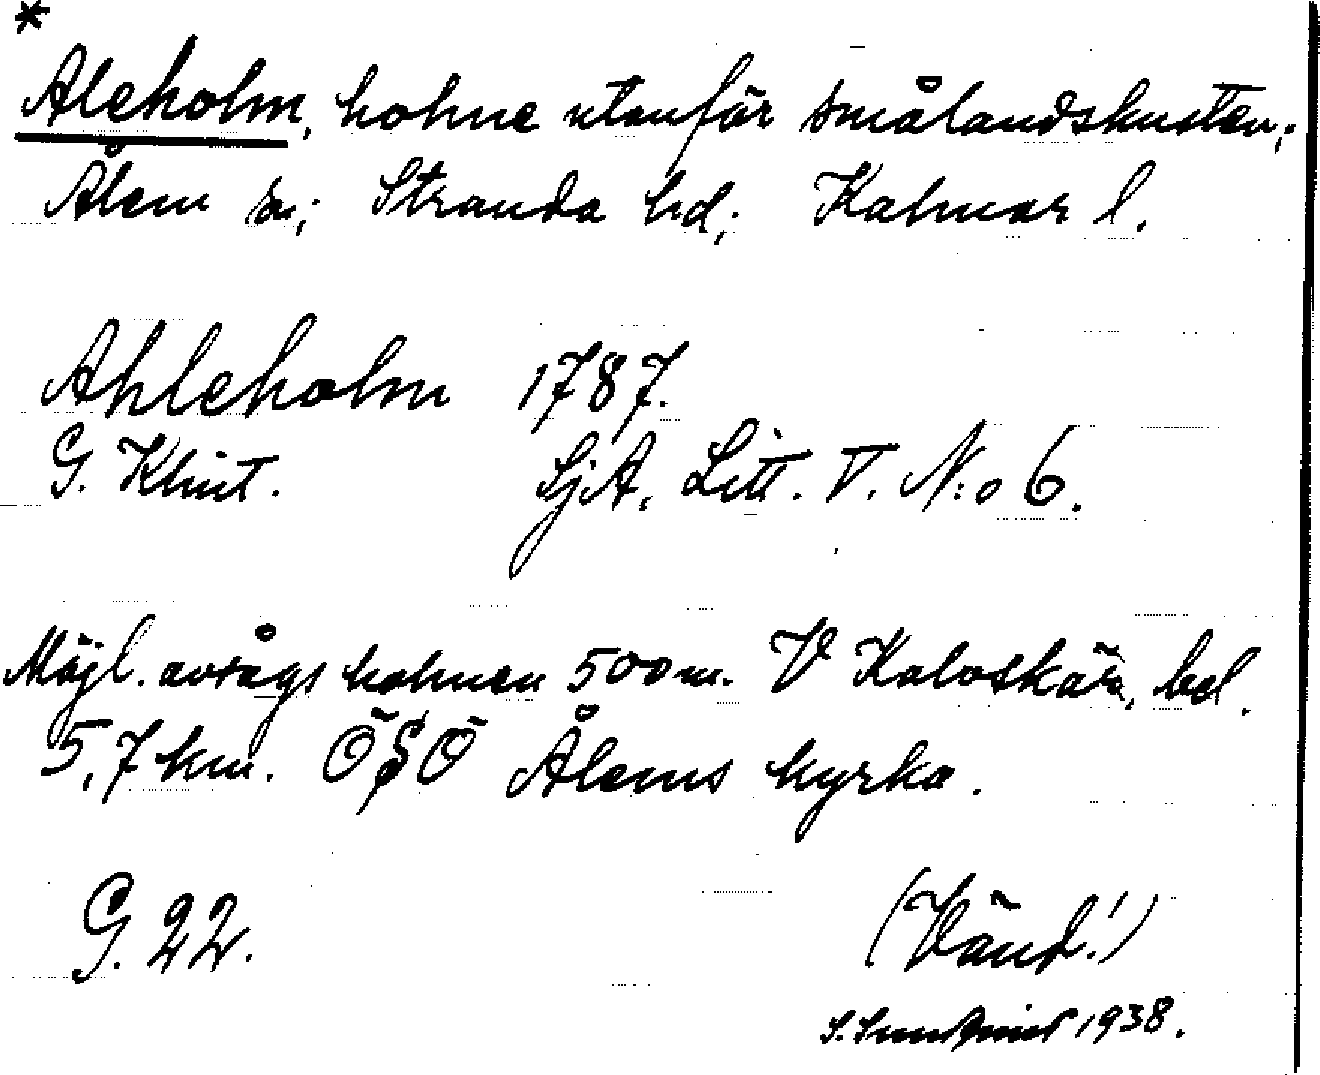 *
Aleholm, holme utanför smålandskusten;
Ålem sn; Stranda hd; Kalmar l.
Ahleholm 1787.
G. Klint. SjA, Litt. V. N:o 6.
Möjl. avsågs holmen 500 m. V Kalvskär, bel.
5,7 km. ÖSÖ Ålems kyrka.
G. 22. (Vänd!)
S. 1938.